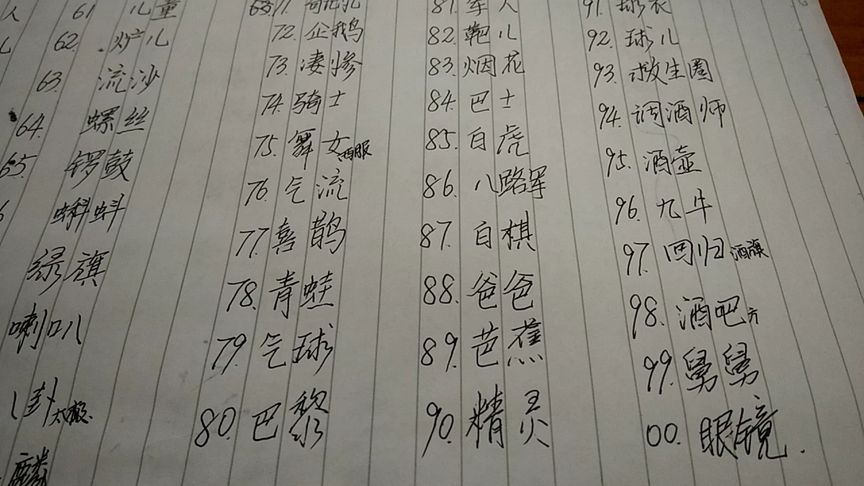 61 儿童
62. 炉儿
63. 流沙
64. 螺丝
65. 锣鼓
蝌蚪
绿旗
喇叭
八卦 太极
麟
72. 企鹅
73. 凄惨
74. 骑士
75. 舞女 西服
76. 气流
77. 喜鹊
78. 青蛙
79. 气球
80. 巴黎
81. 军人
82. 靶儿
83. 烟花
84. 巴士
85. 白虎
86. 八路军
87. 白棋
88. 爸爸
89. 芭蕉
90. 精灵
91. 球衣
92. 球儿
93. 救生圈
94. 调酒师
95. 酒壶
96. 九牛
97. 回归 酒旗
98. 酒吧
99. 舅舅
00. 眼镜.